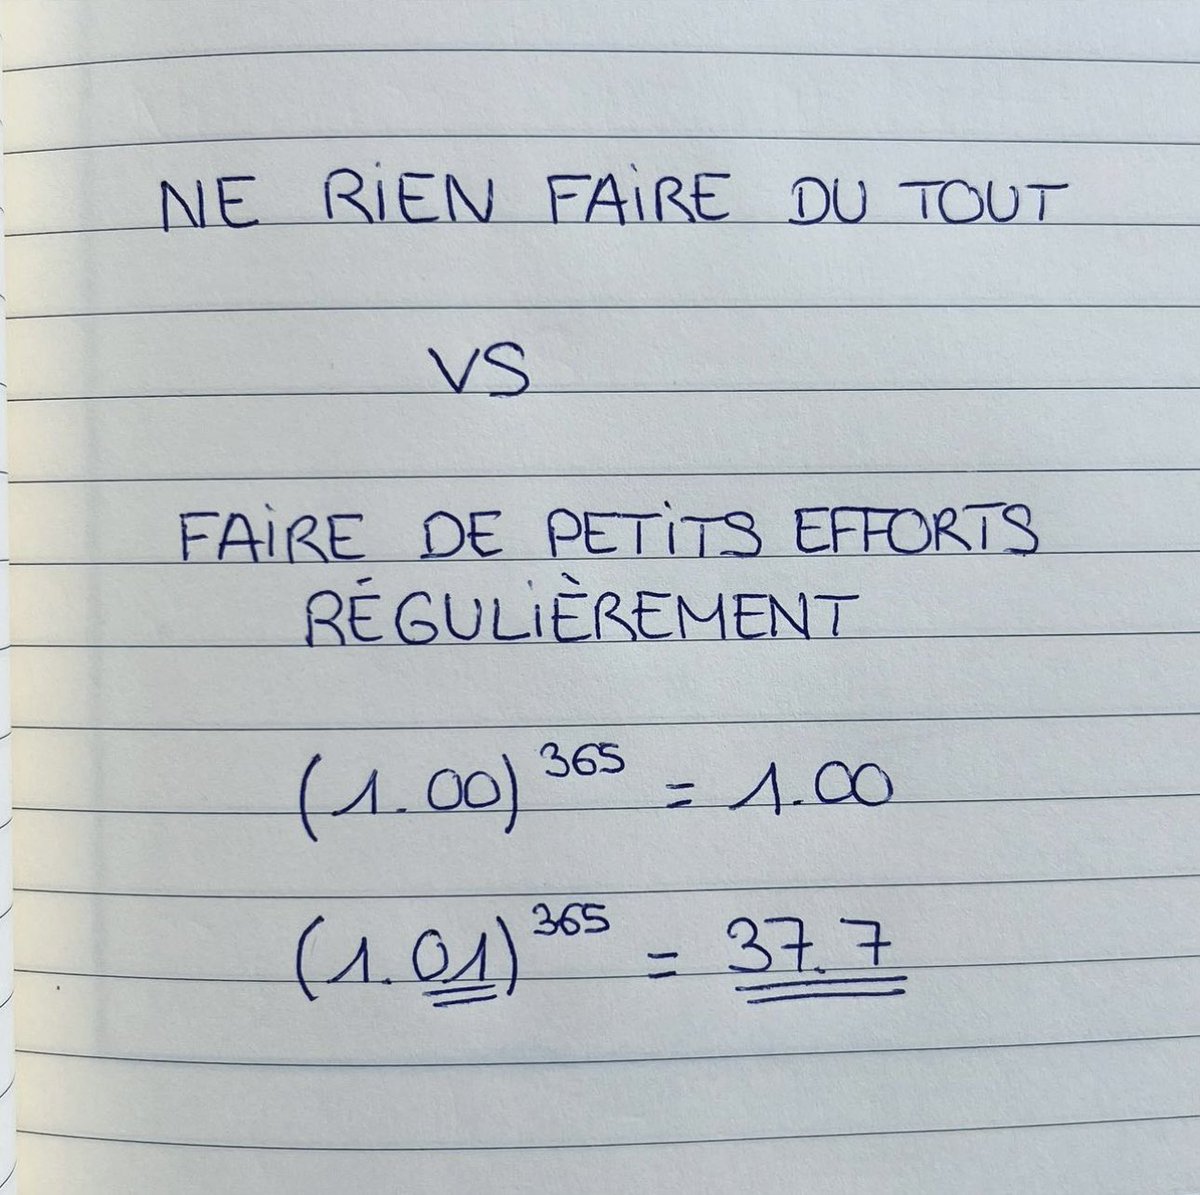 NE RIEN FAIRE DU TOUT
VS
FAIRE DE PETITS EFFORTS
RÉGULIÈREMENT
(1.00)^365 = 1.00
(1.01)^365 = 37.7